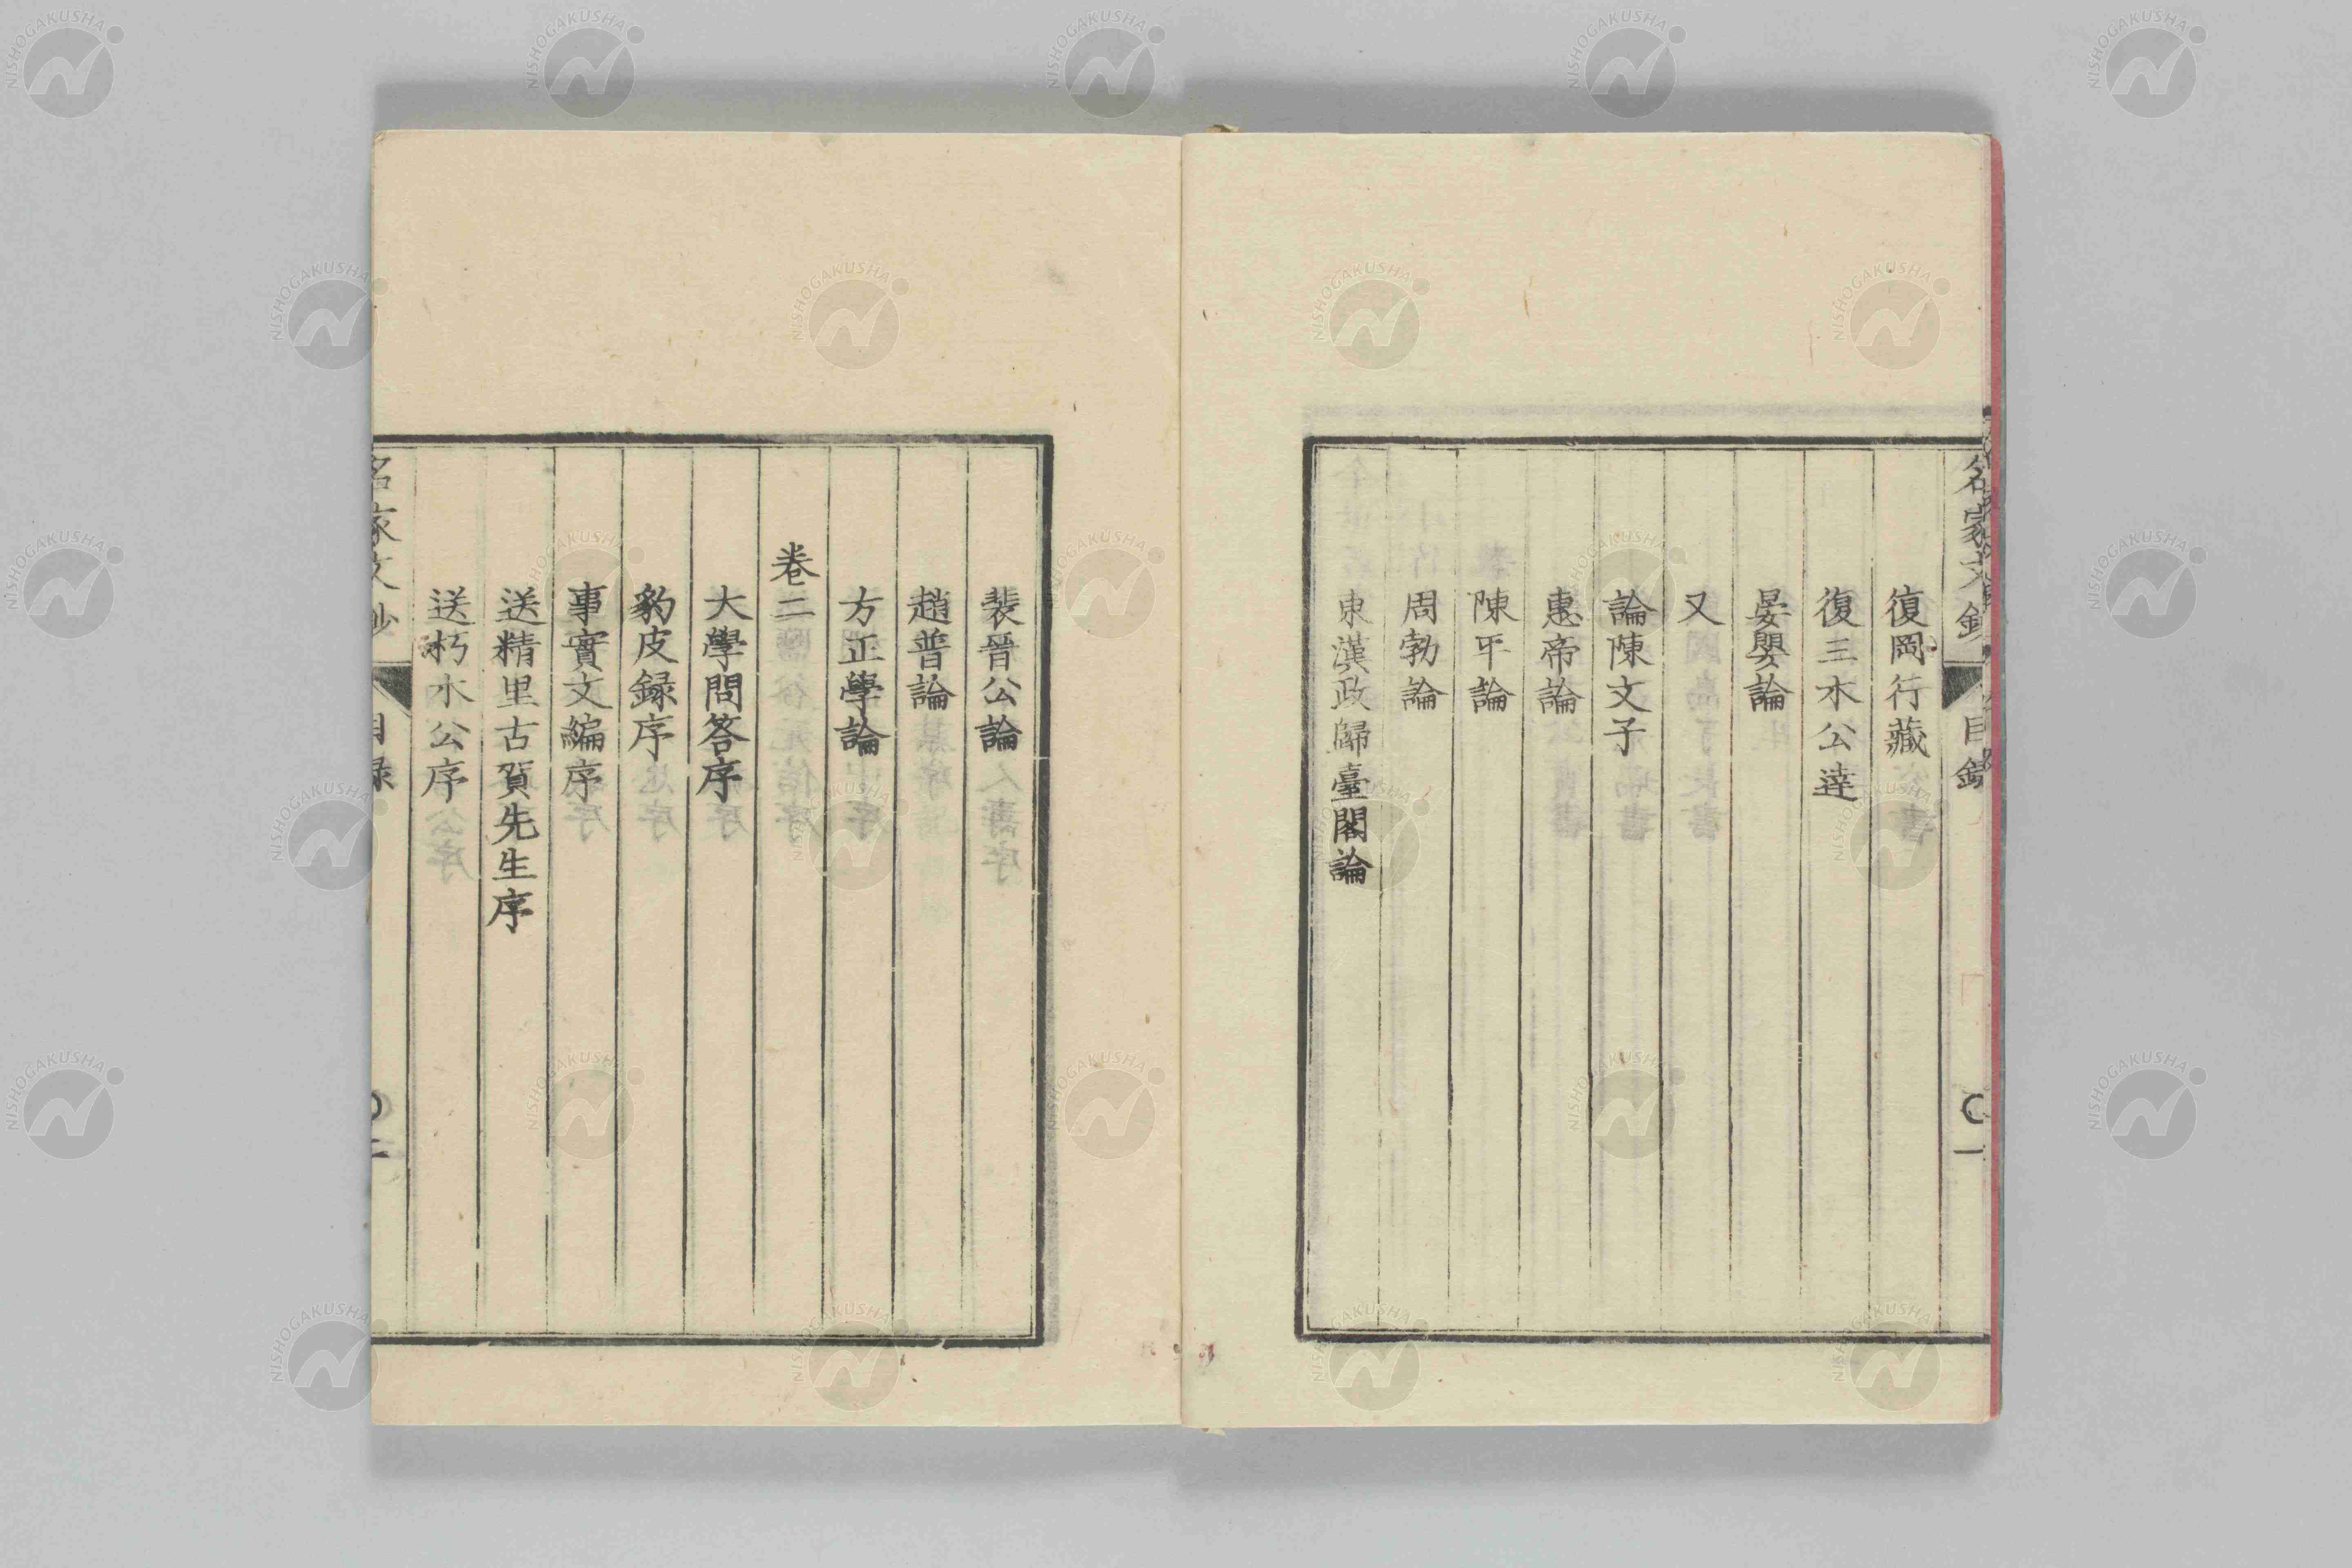 名家文鈔 目録 〇一
復岡行藏
復三木公逹
晏嬰論
又
論陳文子
惠帝論
陳平論
周勃論
東漢政歸臺閣論
裴晉公論
趙普論
方正學論
卷二
大學問答序
豹皮録序
事實文編序
送精里古賀先生序
送朽木公序
名家文鈔 目録 〇二
NISHOGAKUSHA